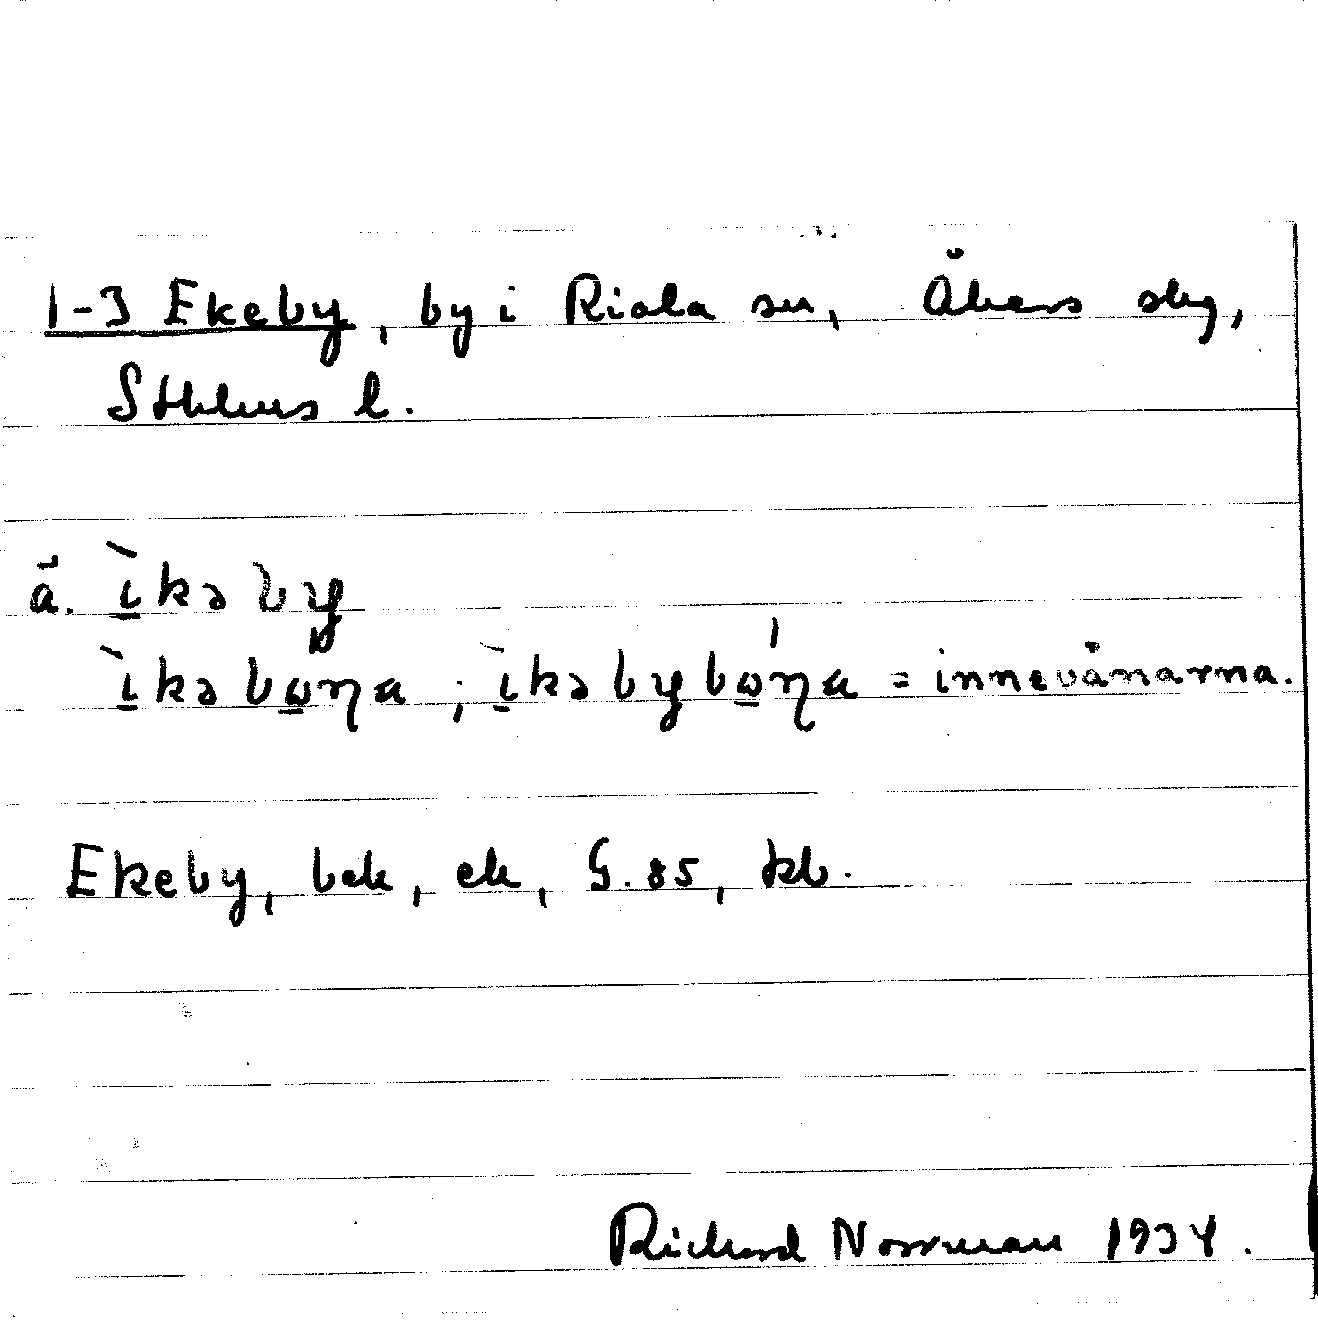 1-3 Ekeby, by i Riala sn, Åkers skg,
Sthlms l.
ä. ìkəby
ìkəbωɳa; ìkəbybωɳa = innevånarna.
Ekeby, bek, ek, G. 85, kb.
Richard Norrman 1934.